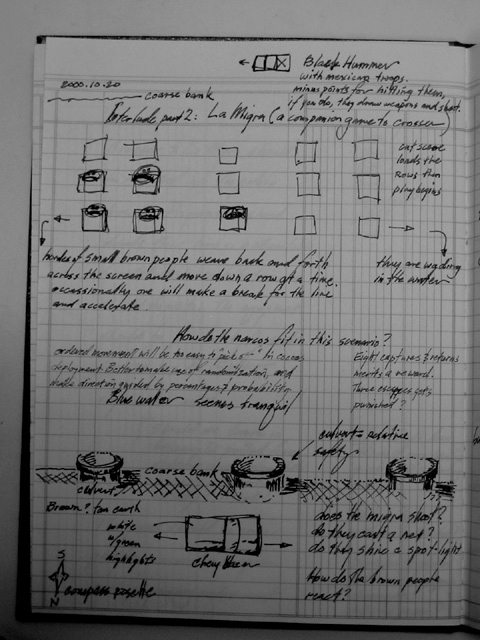 Black Hummer
with mexican troops.
minus points for hitting them,
if you do, they draw weapons and shoot.
2000.10.20
coarse bank
Interlude part 2: La Migra (a companion game to Crosser)
cut scene
loads the
Rows then
play begins
hordes of small brown people weave back and forth
across the screen and move down a row at a time.
occassionally one will make a break for the line
and accelerate.
they are wading
in the water
How do the narcos fit in this scenario?
ordered movement will be too easy to "pick off"
deployment. Better to make use of randomization, and
direction guided by percentages & probability.
Eight captures & returns
merits a reward.
Three escapes gets
punished?
Blue water seems tranquil
culvert = relative
safety
coarse bank
culvert
Brown? tan earth
white
w/green
highlights
chevy
does the migra shoot?
do they cast a net?
do they shine a spot-light
How do the brown people
react?
S
N
compass rosette